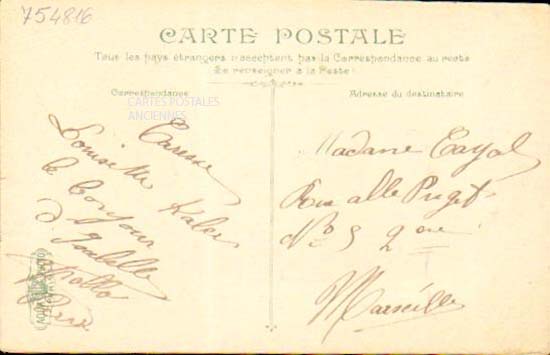 754816
CARTE POSTALE
Tous les pays étrangers n'acceptent pas la Correspondance au recto
Se renseigner à la Poste
Correspondance
CARTES POSTALES
ANCIENNES
Caresse
Louisette
le bonjour
d'
Adresse du destinataire
Madame Cayol
Rue alle Puget
No 5 2 me
Marseille